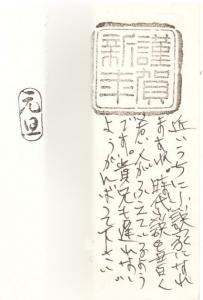 謹賀
新年
元旦
近いうちに小説家になれ
ますね。時代小説も若く
若い人がふえているよう
です。貴兄も遅れない
ようがんばって下さい